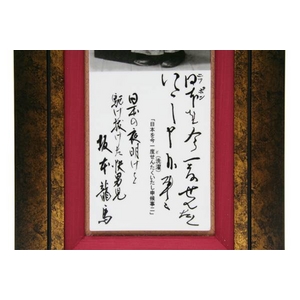 ニッポン
日本を今一度せんたく
いたし申候事
「日本を今一度せんたくいたし申候事ニ」
(洗濯)
日本の夜明けを
駆け抜けた快男児
坂本龍馬